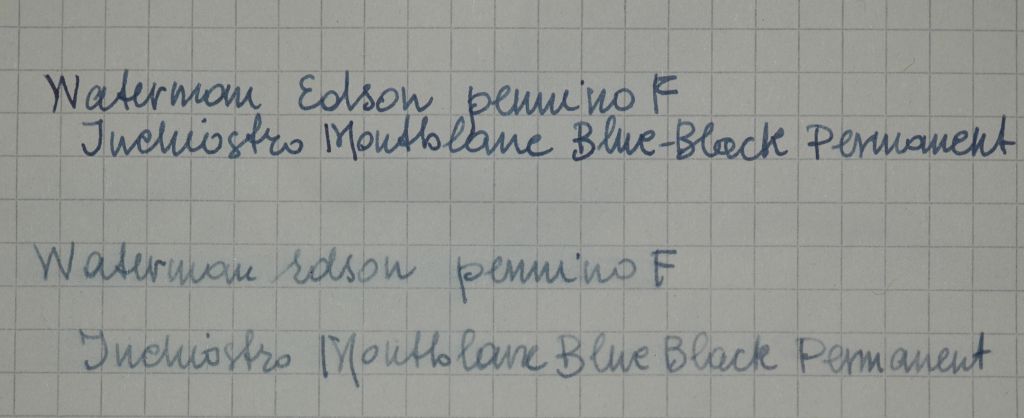 Waterman Edson pennino F
Inchiostro Montblanc Blue-Black Permanent
Waterman Edson pennino F
Inchiostro Montblanc Blue Black Permanent